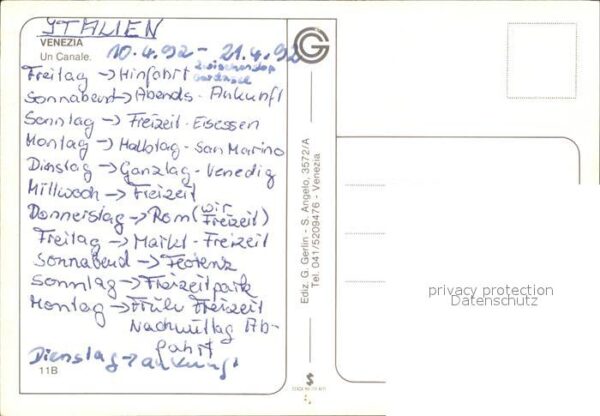 ITALIEN
VENEZIA
Un Canale.
10.4.92 - 21.4.92
Freitag → Hinfahrt Zwischenstop Gardasee
Sonnabend → Abends - Ankunft
Sonntag → Freizeit - Eisessen
Montag → Halbtag - San Marino
Dinstag → Ganztag - Venedig
Mittwoch → Freizeit
Donnerstag → Rom (wir Freizeit)
Freitag → Markt - Freizeit
Sonnabend → Florenz
Sonntag → Freizeitpark
Montag → Früh Freizeit
Nachmittag Ab-
fahrt
Dienstag → Ankunft
11B
G
Ediz. G. Gerlin - S. Angelo, 3572/A
Tel. 041/5209476 - Venezia
privacy protection
Datenschutz